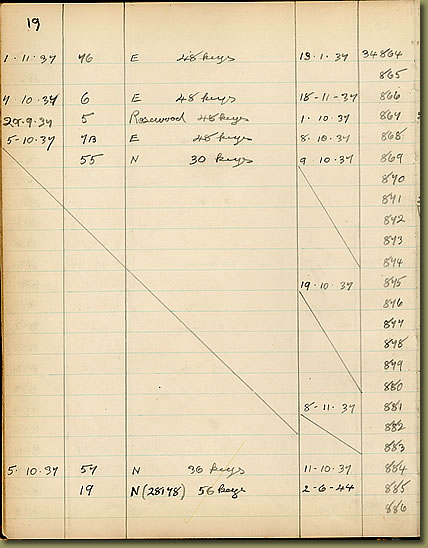 19
1.11.37 76 E 48 keys 13.1.37 34864
865
7.10.37 6 E 48 keys 18-11-37 866
29.9.37 5 Rosewood 48 keys 1.10.37 867
5-10.37 7B E 48 keys 8.10.37 868
55 N 30 keys 9.10.37 869
870
871
872
873
874
19.10.37 875
876
877
878
879
880
8-11-37 881
882
883
5.10.37 57 N 36 keys 11-10.37 884
19 N (28178) 56 keys 2-6-44 885
886